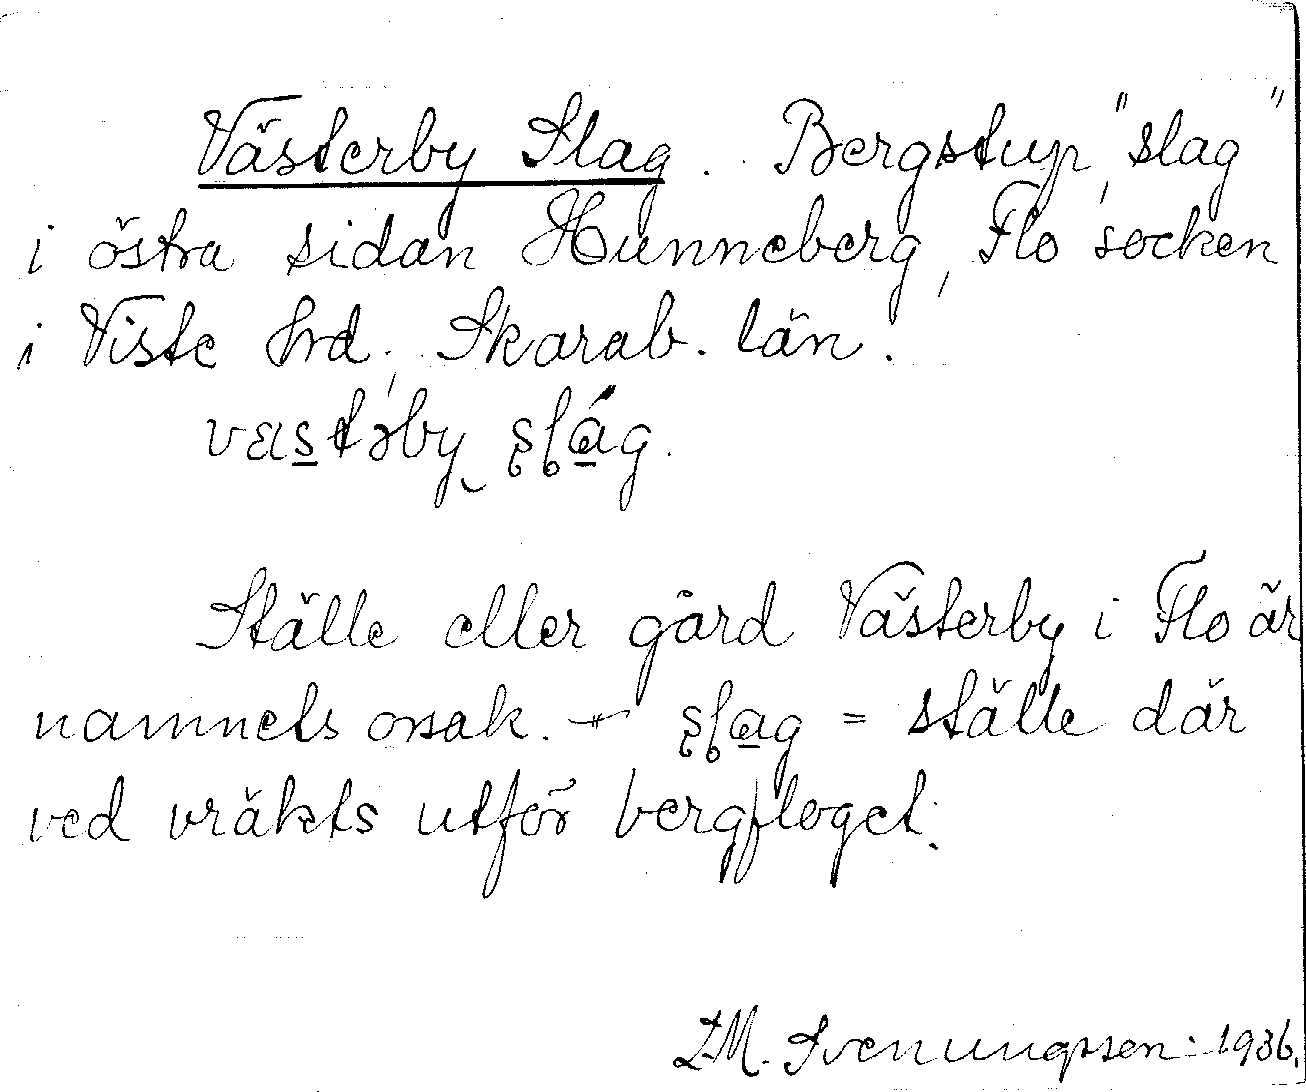 Västerby Slag. Bergstup, "slag"
i östra sidan Hunneberg, Flo socken
i Viste hrd, Skarab. län.
Ställe eller gård Västerby i Flo är
namnets orsak. = ställe där
ved vräkts utför bergfloget.
L.M. Svenungsson. 1936.